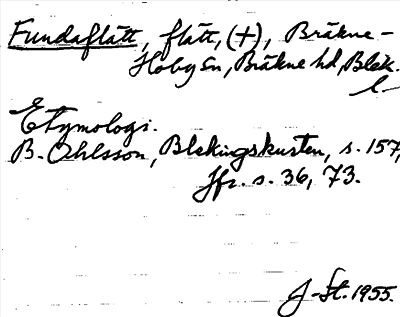 Fundaflätt, flätt, (+), Bräkne-
Hoby sn, Bräkne hd, Blek.
l-
Etymologi.
B. Ohlsson, Blekingskusten, s. 157,
Jfr. s. 36, 73.
J-St. 1955.